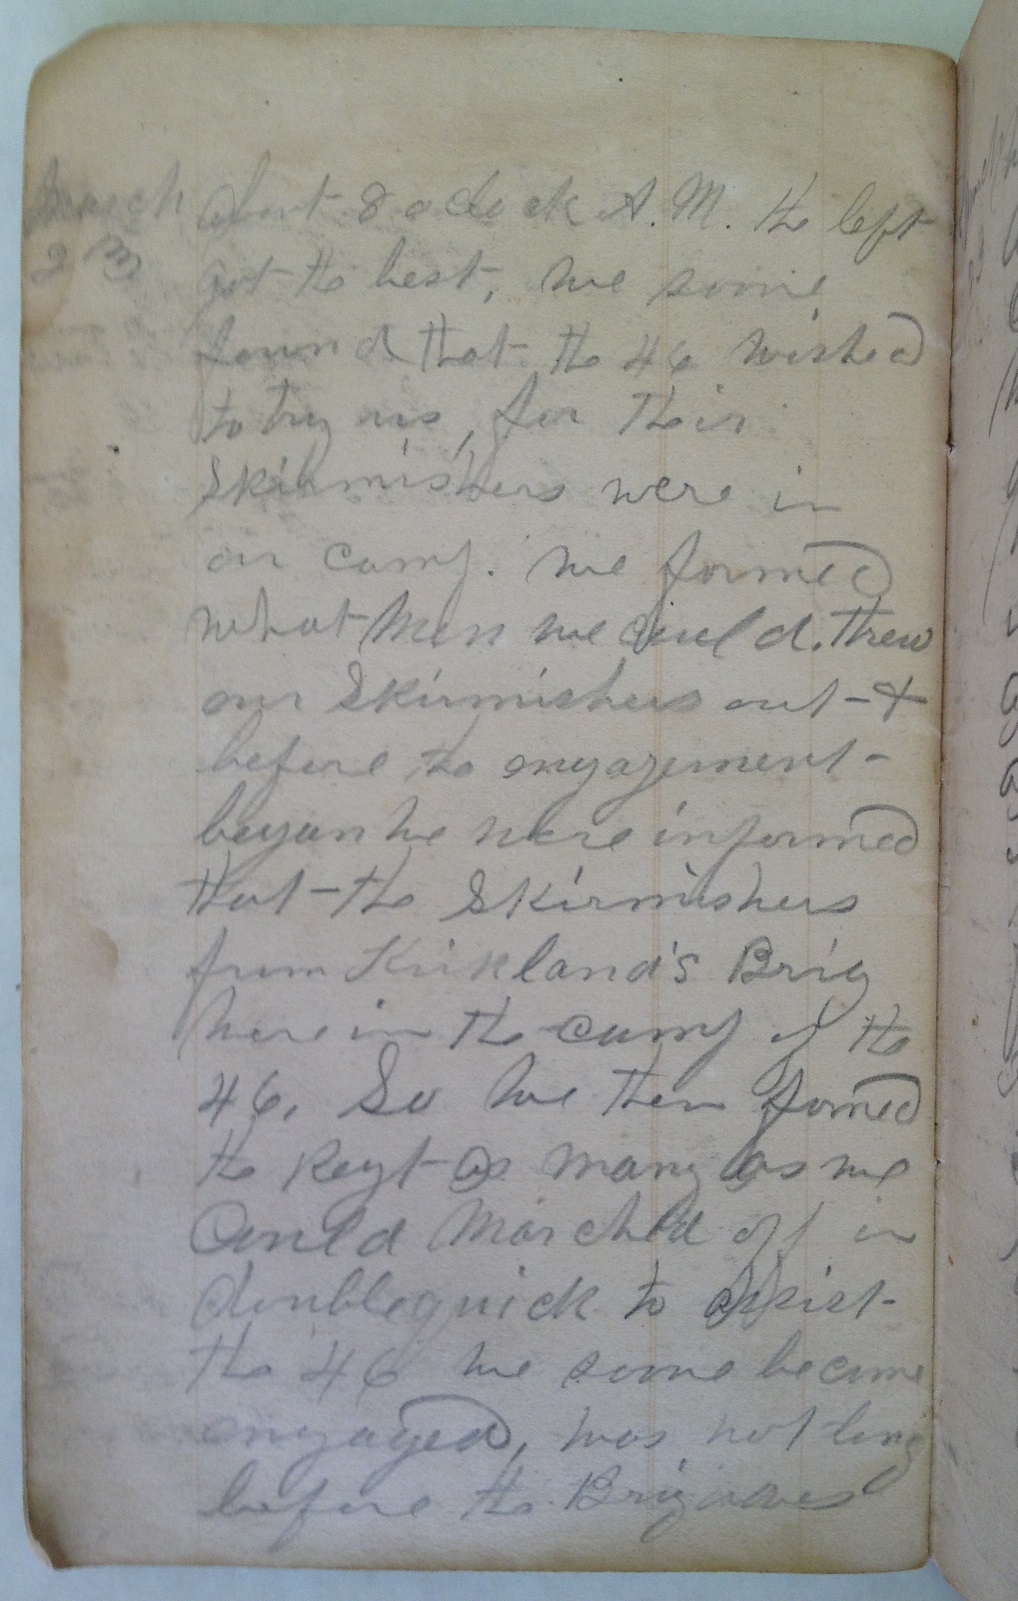 March About 8 oclock A.M. the left
23 got the best, we some
found that the 46 wished
to try us, for their
Skirmishers were in
our camp. we formed
what men we could. threw
our Skirmishers out - &
before the engagement -
began we were informed
that - the Skirmishers
from Kirkland's Brig
were in the camp of the
46. So we then formed
the Regt as many as we
Could Marched off in
doublequick to assist -
the 46 we some became
engaged, was not long
before the Brigades